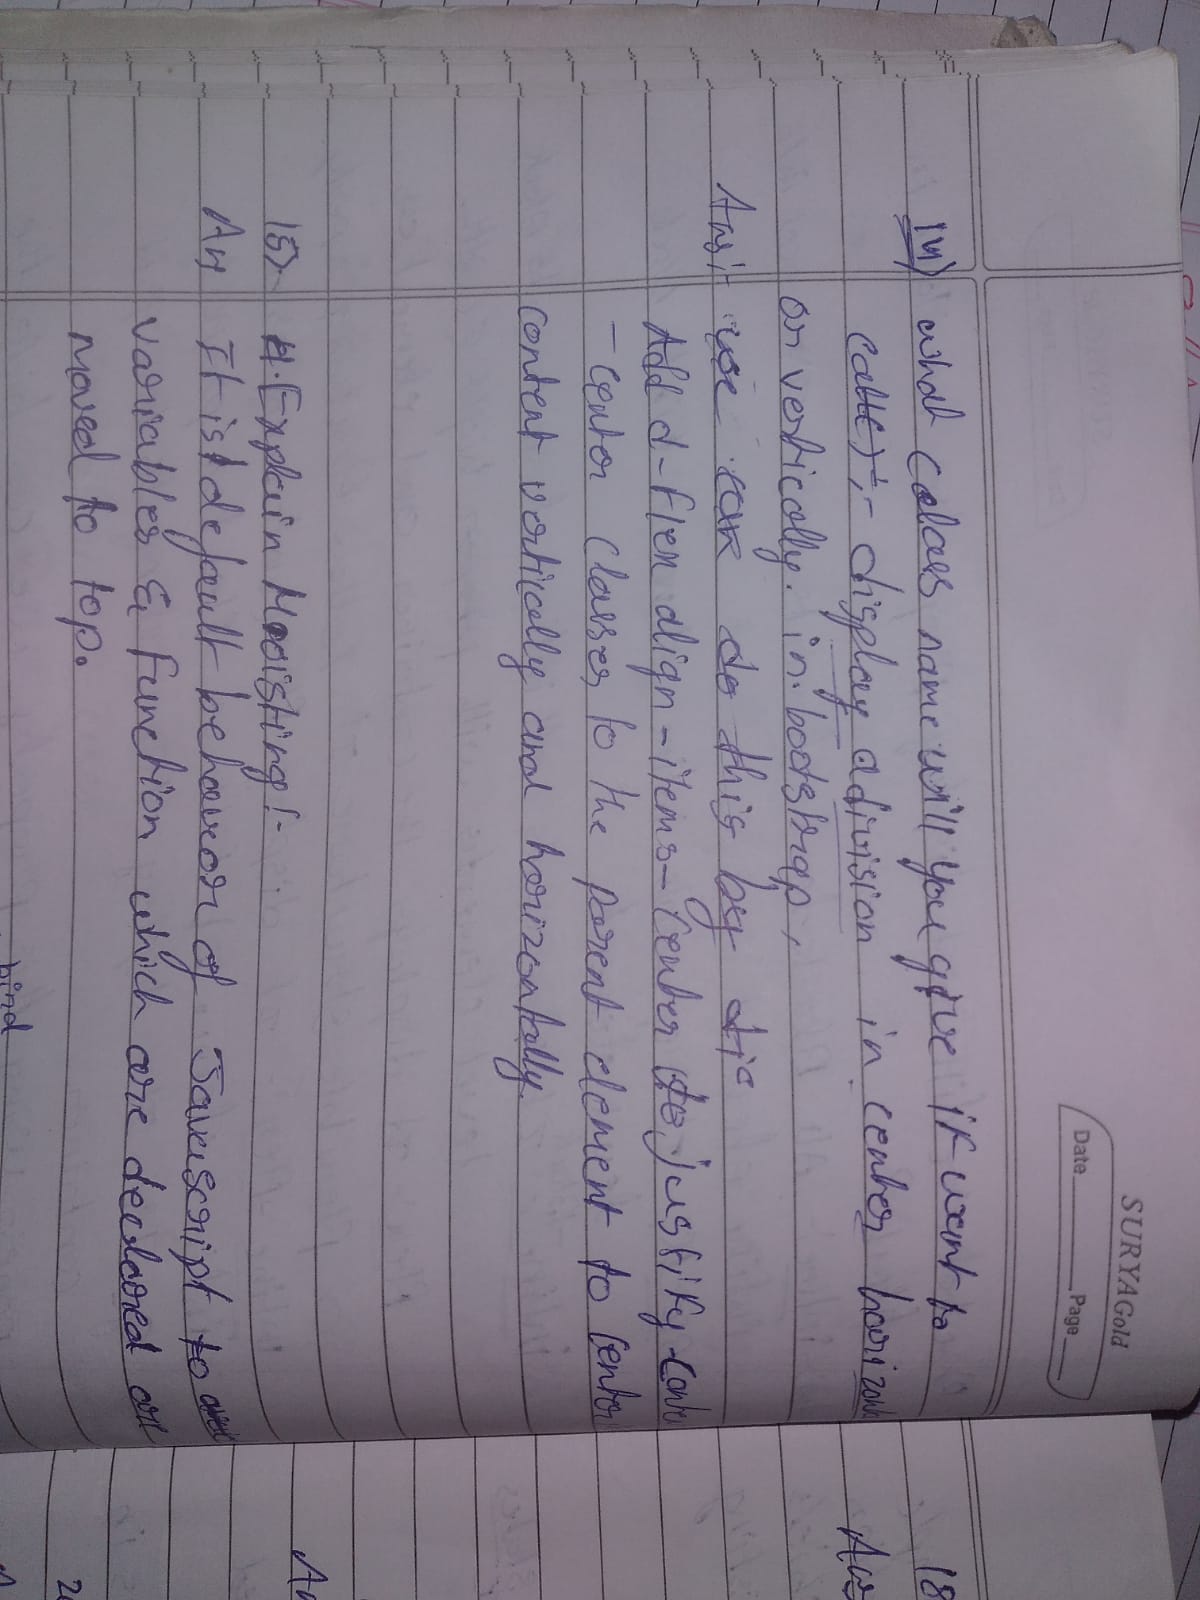 SURYAGold
Date Page
14) what calass name will you give if want to
display a division in center horizont
or vertically. in bootstrap,
Ans:- use do this by
Add d-flex align-items-center justify-conte
-center classes to the parent element to center
content vertically and horizontally.
15) Explain Hoisting:-
An It is default behavior of Javascript to
variables & function which are declared are
moved to top.
bind
18
An
An